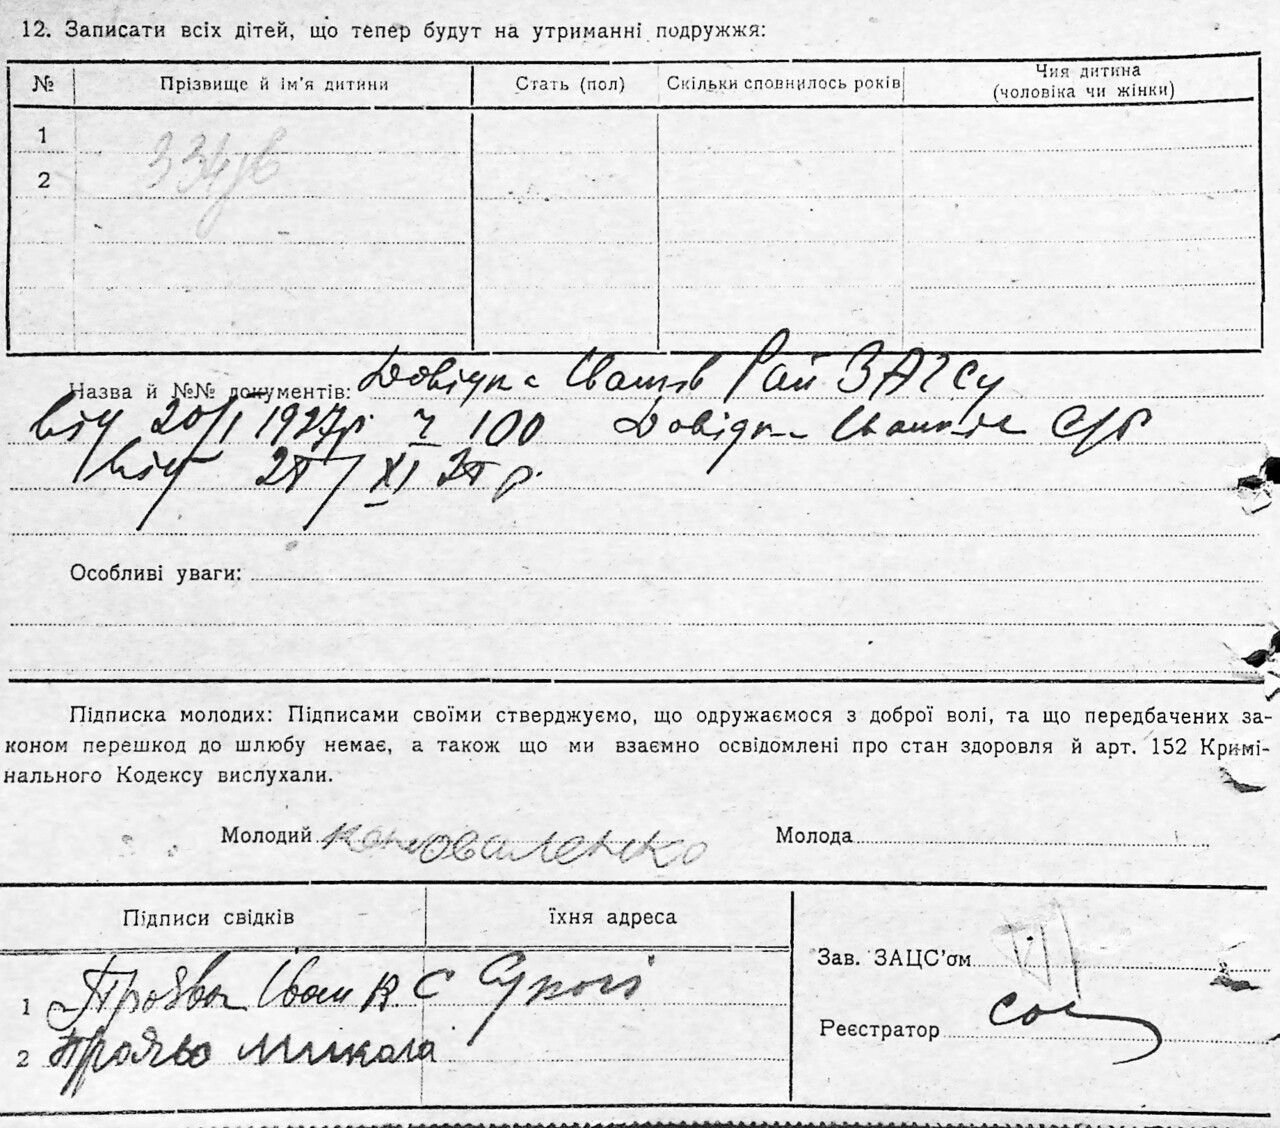 12. Записати всіх дітей, що тепер будут на утриманні подружжя:
№ Прізвище й ім'я дитини Стать (пол) Скільки сповнилось років Чия дитина (чоловіка чи жінки)
1
2
Назва й №№ документів: Довідка Рай ЗАГСу
від 20/I 1927р. ч 100 Довідка С/р
від XI р.
Особливі уваги:
Підписка молодих: Підписами своїми стверджуємо, що одружаємося з доброї волі, та що передбачених за-
коном перешкод до шлюбу немає, а також що ми взаємно освідомлені про стан здоровля й арт. 152 Кримі-
нального Кодексу вислухали.
Молодий Коноваленко Молода
Підписи свідків їхня адреса
Зав. ЗАЦС'ом
1 Іван
Реєстратор
2 Микола